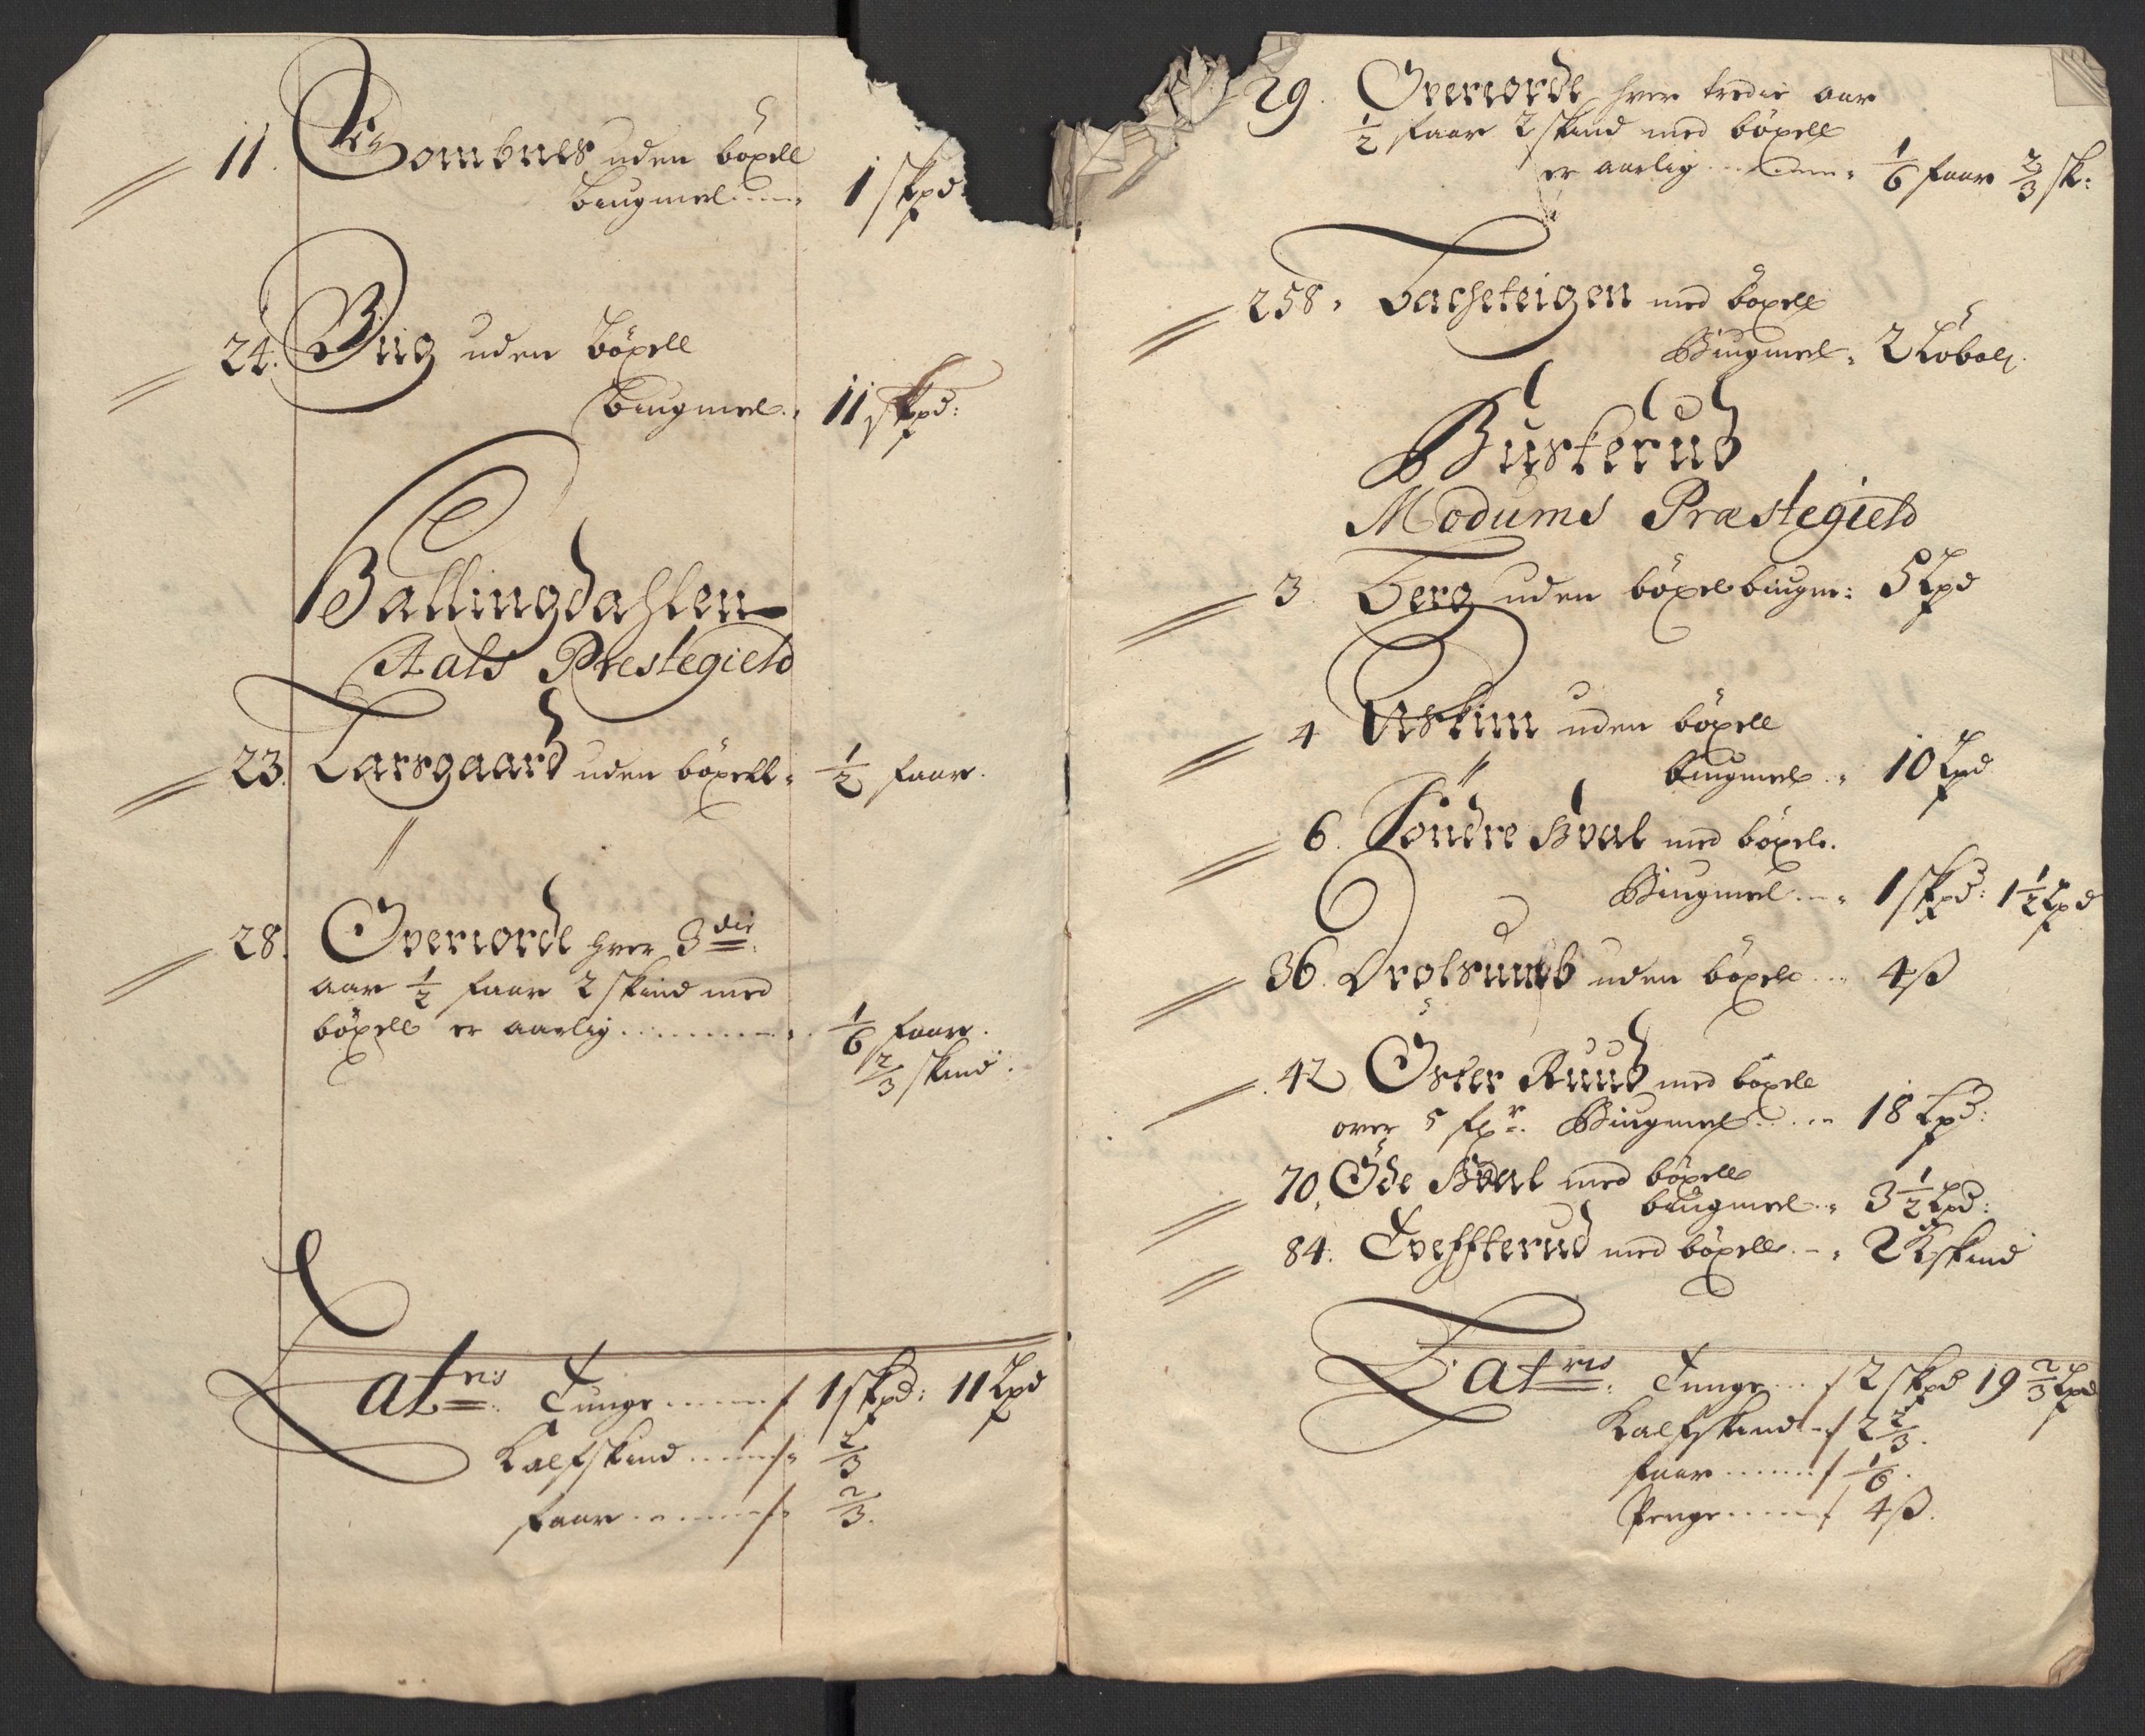 11. Gombnes uden böxell
Biugmel 1 skpd
24. Biig uden böxell
Biugmel. 11 skpd:
Hallingdahlen
Aals Prestegield
23. Larsgaard uden böxell. 1/2 faar.
28. Overiorde hver 3die
aar 1/2 faar 2 skind med
böxell er aarlig 1/6 faar.
2/3 skind.
Latris. Tunge 1 skpd: 11 Lpd
Kalfskind 2/3
faar 2/3.
29. Overiorde hver tredie aar
1/2 faar 2 skind med böxell
er aarlig 1/6 faar 2/3 sk:
258. Bacheteigen med böxell
Biugmel. 2
Buskerud
Modums Præstegield
3. Berg uden böxel biugm: 5 Lpd
4 Askim uden böxell
Biugmel. 10 Lpd
6. Söndre Hval med böxel.
Biugmel 1 skpd: 1 1/2 Lpd
36. Drolsumb uden böxell 4 ß
42 Öster Ruud med böxell
over 5 fxr. Biugmel 18 Lpd:
70. Öde Hval med böxell
biugmel 3 1/2 Lpd:
84. Tveffterud med böxell 2 Kskind
Latris. Tunge 2 skpd 19 2/3 Lpd
Kalfskind 2 2/3.
faar 1/6.
Penge 4 ß.